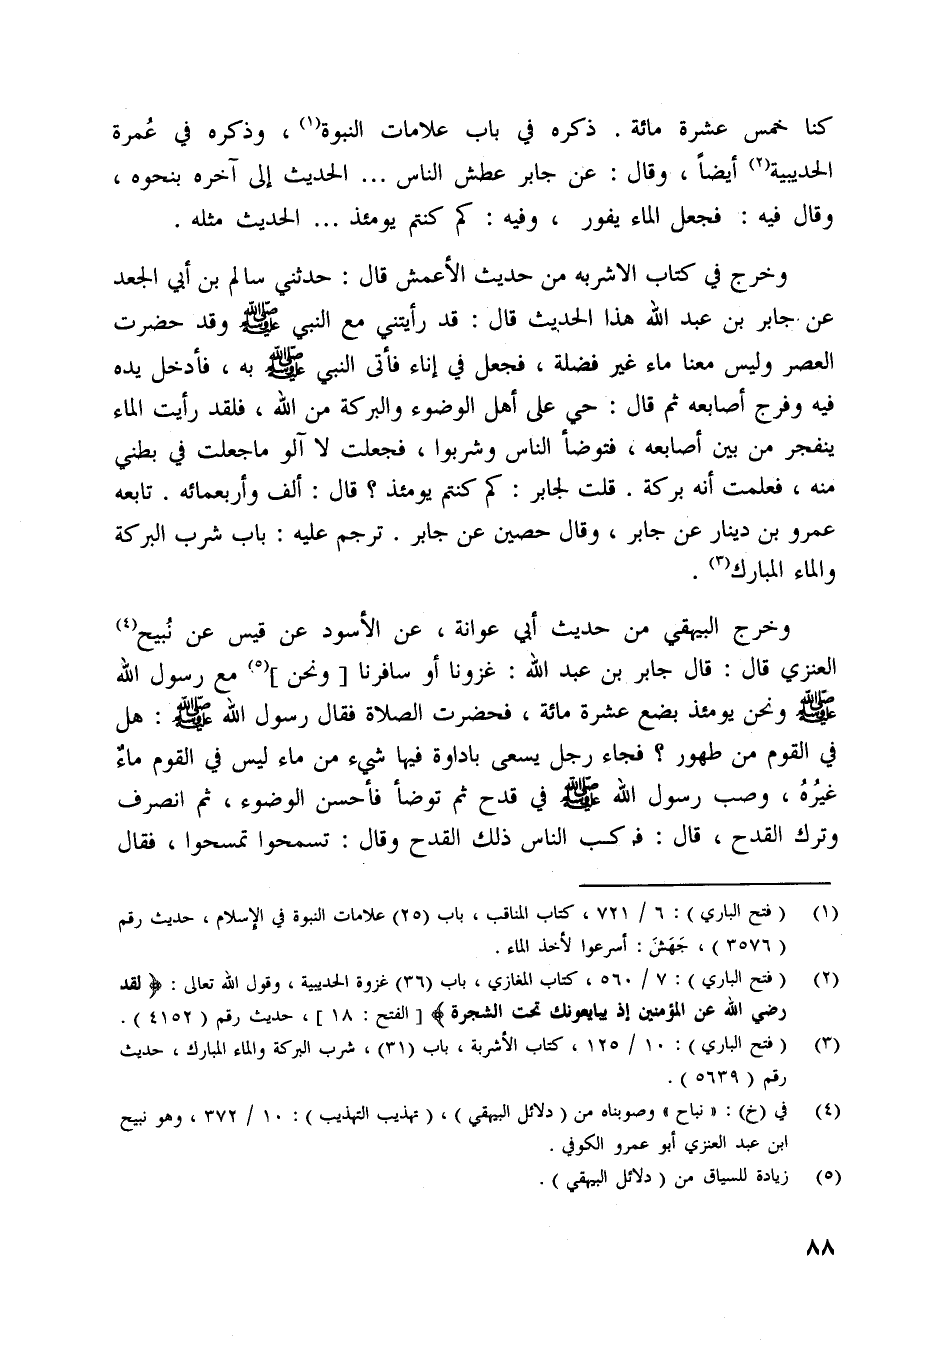 كنا خمس عشرة مائة . ذكره في باب علامات النبوة(١) ، وذكره في عُمرة
الحديبية(٢) أيضاً ، وقال : عن جابر عطش الناس ... الحديث إلى آخره بنحوه ،
وقال فيه : فجعل الماء يفور ، وفيه : كم كنتم يومئذ ... الحديث مثله .
وخرج في كتاب الاشربه من حديث الأعمش قال : حدثني سالم بن أبي الجعد
عن جابر بن عبد الله هذا الحديث قال : قد رأيتني مع النبي ﷺ وقد حضرت
العصر وليس معنا ماء غير فضلة ، فجعل في إناء فأتى النبي ﷺ به ، فأدخل يده
فيه وفرج أصابعه ثم قال : حي على أهل الوضوء والبركة من الله ، فلقد رأيت الماء
ينفجر من بين أصابعه ، فتوضأ الناس وشربوا ، فجعلت لا آلو ماجعلت في بطني
منه ، فعلمت أنه بركة . قلت لجابر : كم كنتم يومئذ ؟ قال : ألف وأربعمائه . تابعه
عمرو بن دينار عن جابر ، وقال حصين عن جابر . ترجم عليه : باب شرب البركة
والماء المبارك(٣) .
وخرج البيهقي من حديث أبي عوانة ، عن الأسود عن قيس عن نُبيح(٤)
العنزي قال : قال جابر بن عبد الله : غزونا أو سافرنا [ ونحن ](٥) مع رسول الله
ﷺ ونحن يومئذ بضع عشرة مائة ، فحضرت الصلاة فقال رسول الله ﷺ : هل
في القوم من طهور ؟ فجاء رجل يسعى باداوة فيها شيء من ماء ليس في القوم ماءٌ
غيرُهُ ، وصب رسول الله ﷺ في قدح ثم توضأ فأحسن الوضوء ، ثم انصرف
وترك القدح ، قال : فركب الناس ذلك القدح وقال : تسمحوا تمسحوا ، فقال
(١) ( فتح الباري ) : ٦ / ٧٢١ ، كتاب المناقب ، باب (٢٥) علامات النبوة في الإسلام ، حديث رقم
( ٣٥٧٦ ) ، جَهَشَ : أسرعوا لأخذ الماء .
(٢) ( فتح الباري ) : ٧ / ٥٦٠ ، كتاب المغازي ، باب (٣٦) غزوة الحديبية ، وقول الله تعالى : ﴿ لقد
رضي الله عن المؤمنين إذ يبايعونك تحت الشجرة ﴾ [ الفتح : ١٨ ] ، حديث رقم ( ٤١٥٢ ) .
(٣) ( فتح الباري ) : ١٠ / ١٢٥ ، كتاب الأشربة ، باب (٣١) ، شرب البركة والماء المبارك ، حديث
رقم ( ٥٦٣٩ ) .
(٤) في (خ) : « نباح » وصوبناه من ( دلائل البيهقي ) ، ( تهذيب التهذيب ) : ١٠ / ٣٧٢ ، وهو نبيح
ابن عبد العنزي أبو عمرو الكوفي .
(٥) زيادة للسياق من ( دلائل البيهقي ) .
٨٨